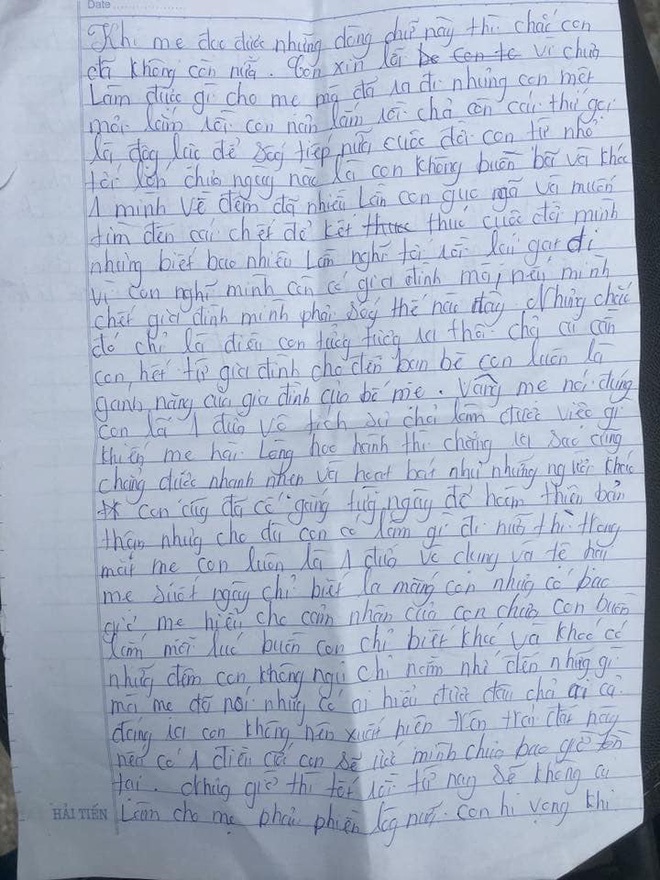 Date
Khi mẹ đọc được những dòng chữ này thì chắc con
đã không còn nữa. Con xin lỗi bố con to vì chưa
Làm được gì cho mẹ mà đã ra đi nhưng con mệt
mỏi lắm rồi con nản lắm rồi chả còn cái thứ gọi
là động lực để sống tiếp nữa cuộc đời con từ nhỏ
tới lớn chưa ngày nào là con không buồn bã và khóc
1 mình về đêm đã nhiều lần con gục ngã và muốn
tìm đến cái chết để kết thúc cuộc đời mình
nhưng biết bao nhiêu lần nghĩ tới rồi lại gạt đi
vì con nghĩ mình còn có gia đình mà, nếu mình
chết gia đình mình phải sống thế nào đây. Nhưng chắc
đó chỉ là điều con tưởng tượng ra thôi chả ai cần
con, hết từ gia đình cho đến bạn bè con luôn là
gánh nặng của gia đình của bố mẹ. Vâng mẹ nói đúng
con là 1 đứa vô tích sự chả làm được việc gì
khiến mẹ hài lòng học hành thì chẳng ra sao cũng
chẳng được nhanh nhẹn và hoạt bát như những người khác
con cũng đã cố gắng từng ngày để hoàn thiện bản
thân nhưng cho dù con có làm gì đi nữa thì trong
mắt mẹ con luôn là 1 đứa vô dụng và tệ hại
mẹ suốt ngày chỉ biết la mắng con nhưng có bao
giờ mẹ hiểu cho cảm nhận của con chưa con buồn
lắm mỗi lúc buồn con chỉ biết khóc và khóc có
những đêm con không ngủ chỉ nằm nhớ đến những gì
mà mẹ đã nói nhưng có ai hiểu được đâu chả ai cả.
đáng ra con không nên xuất hiện trên trái đất này
nếu có 1 điều ước con sẽ ước mình chưa bao giờ tồn
tại. Nhưng giờ thì tốt rồi từ nay sẽ không ai
Làm cho mẹ phải phiền lòng nữa. Con hi vọng khi
HẢI TIẾN